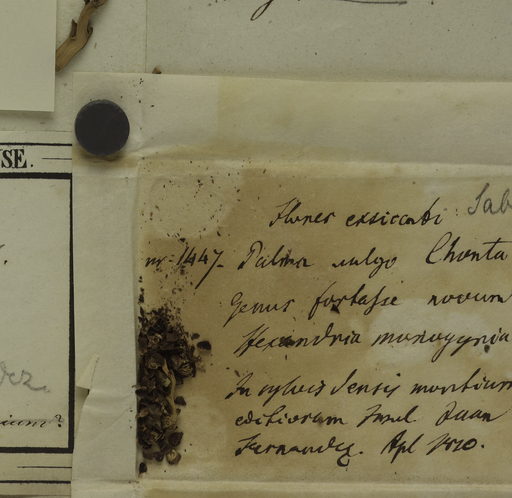 SE.
Flores exsiccati Sab
nr. 1447. Palma vulgo Chonta
Genus fortasse novum
Hexandria monogynia
In sylvis densis montium
editiorum Insul Juan
Fernandez. Apl 1830.
dez.